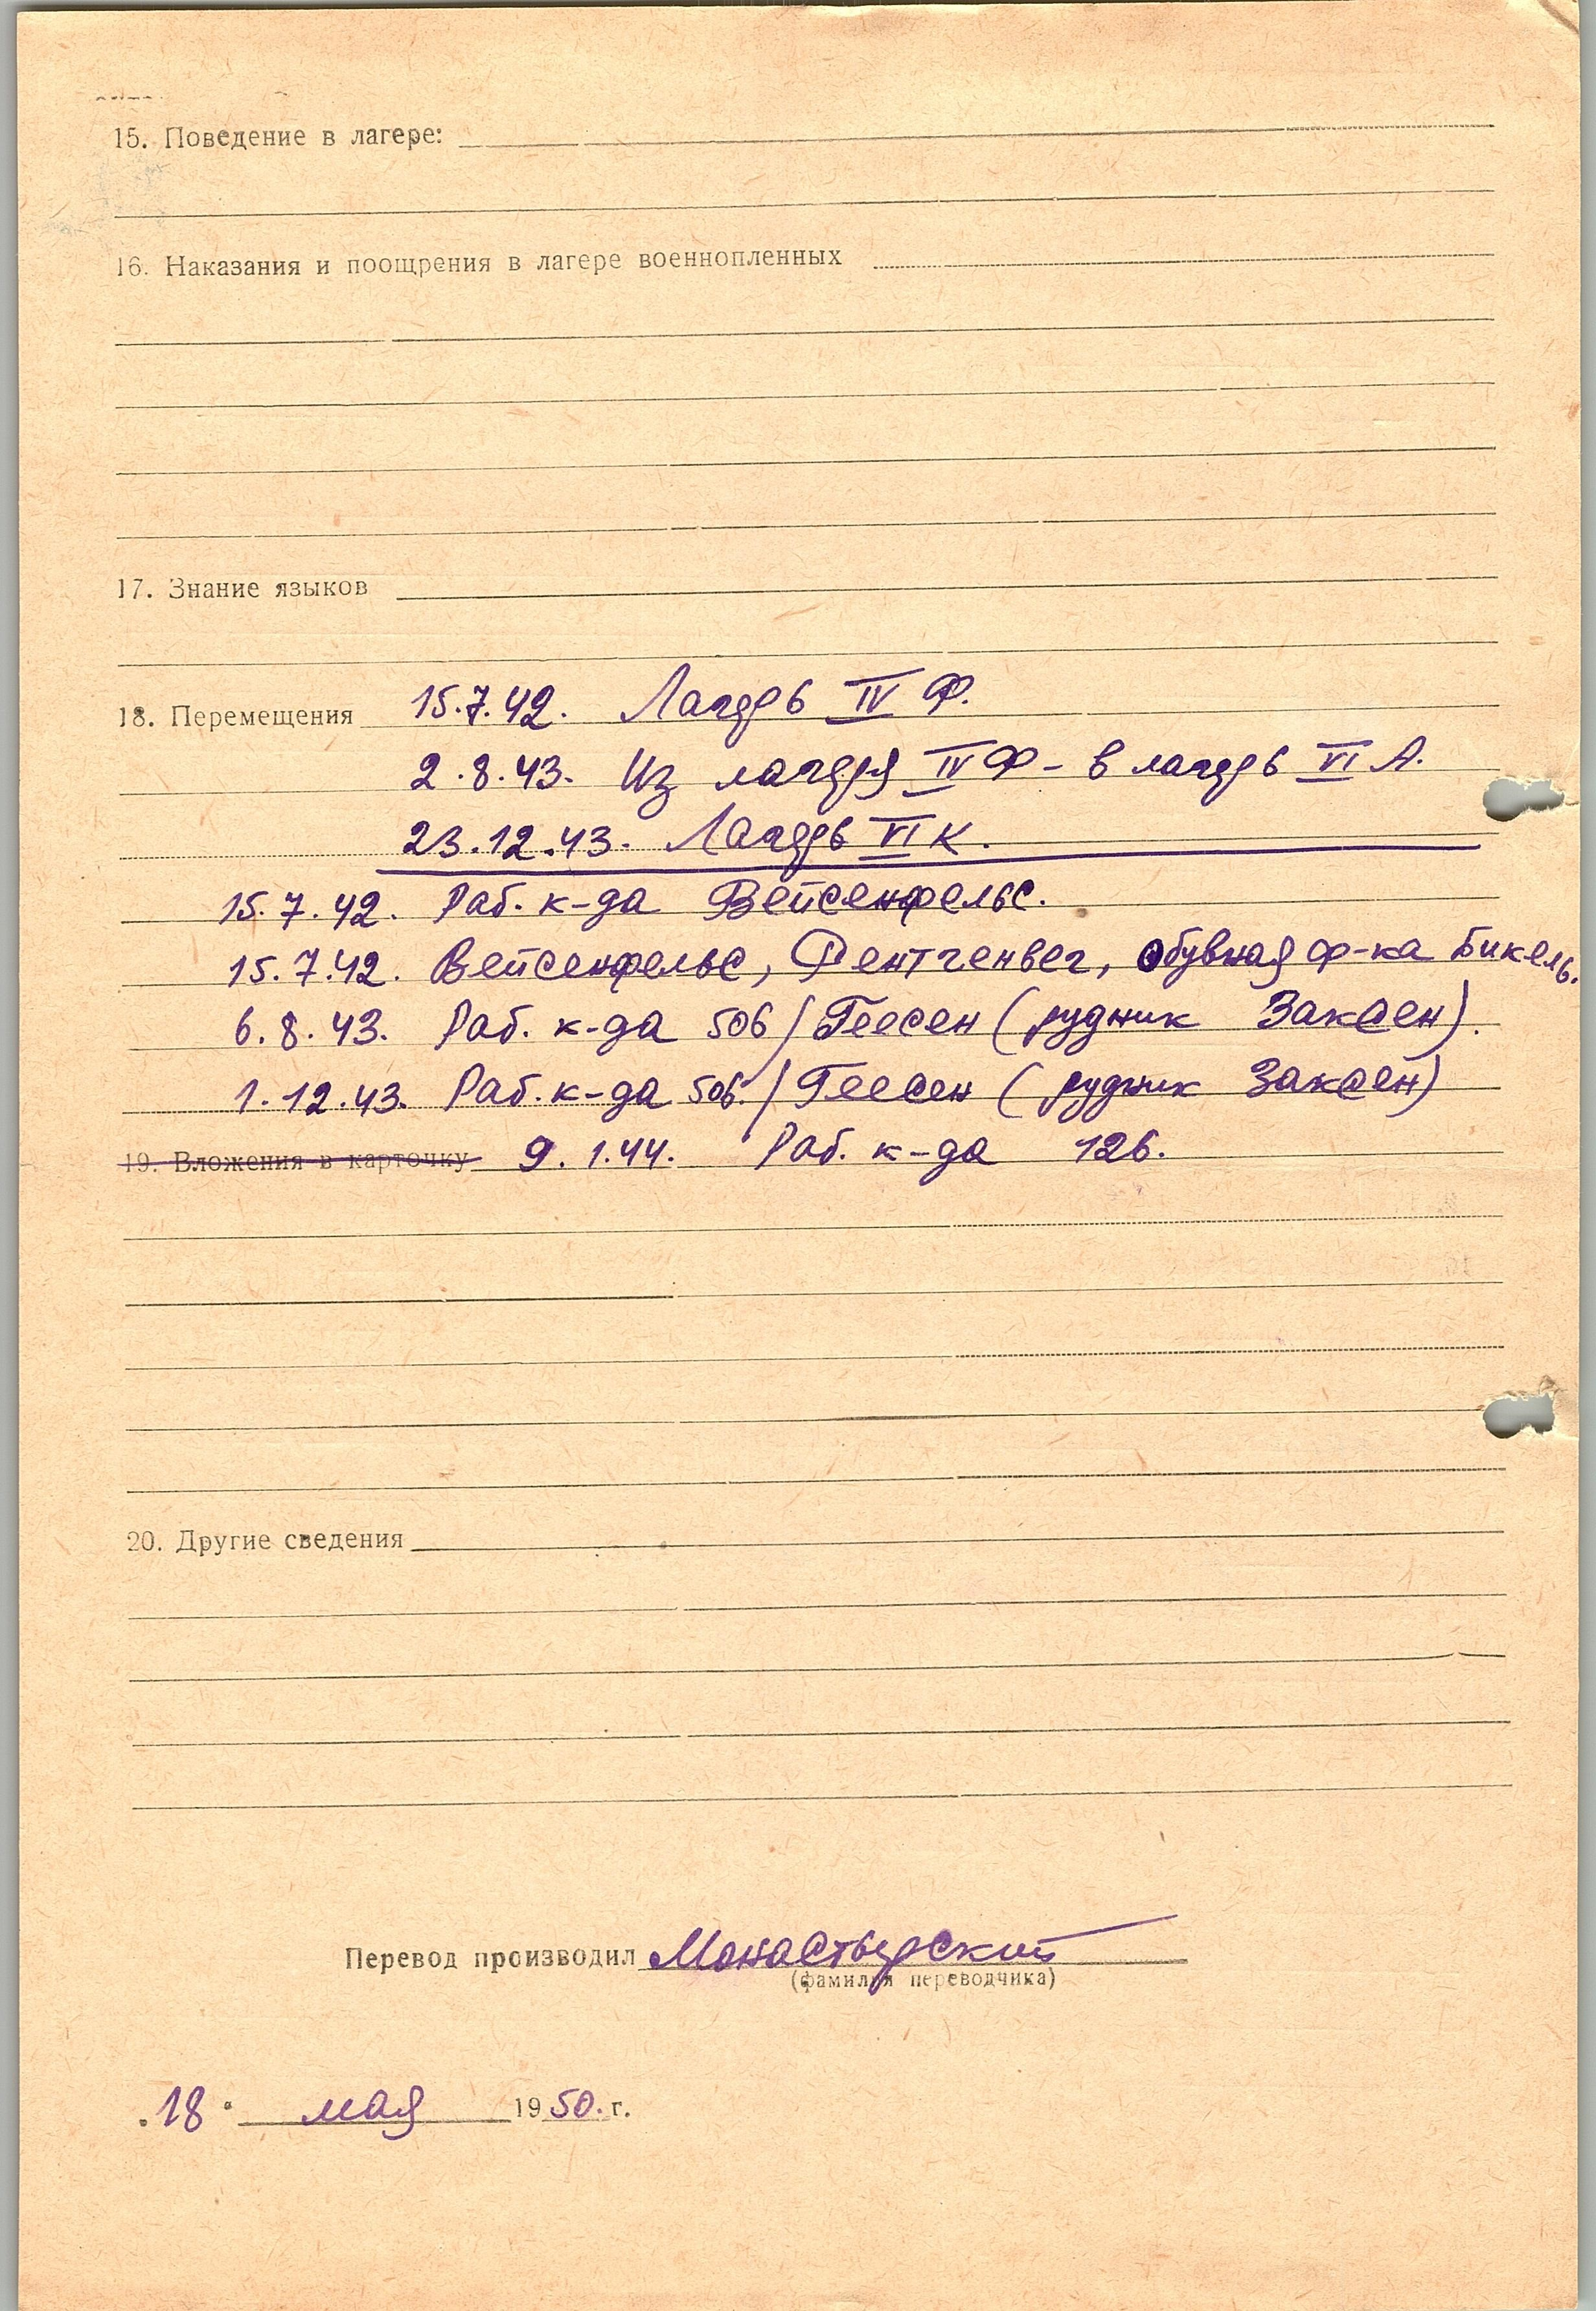 15. Поведение в лагере:
16. Наказания и поощрения в лагере военнопленных
17. Знание языков
18. Перемещения 15.7.42. Лагерь IV Ф.
2.8.43. Из лагеря IV Ф - в лагерь VI А.
23.12.43. Лагерь VI К.
15.7.42. Раб. к-да Вейсенфельс.
15.7.42. Вейсенфельс, Рентгенвег, обувная ф-ка Бикель.
6.8.43. Раб. к-да 506/Геесен (рудник Заксен).
1.12.43. Раб. к-да 506./Геесен (рудник Заксен)
19. Вложения в карточку 9.1.44. Раб. к-да 126.
20. Другие сведения
Перевод производил Монастырский
(фамилия переводчика)
"18" мая 1950. г.